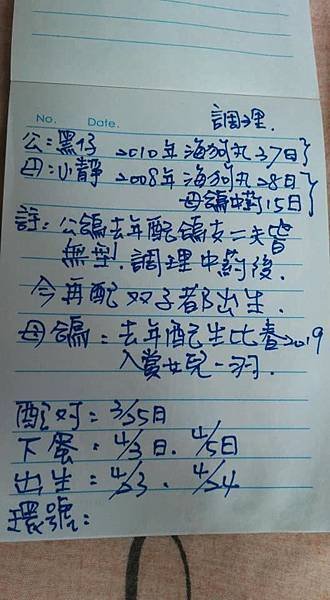 調理.
No. Date.
公:黑仔 2010年海狗丸27日
母:小靜 2008年海狗丸28日
母鴿中葯15日
註:公鴿去年配鴿友二夫皆
無型.調理中葯後.
今再配双子都出生.
母鴿:去年配生比春2019
入賞女兒一羽.
配对:3/25日
下蛋:4/3日.4/5日
出生:4/23.4/24
環號: